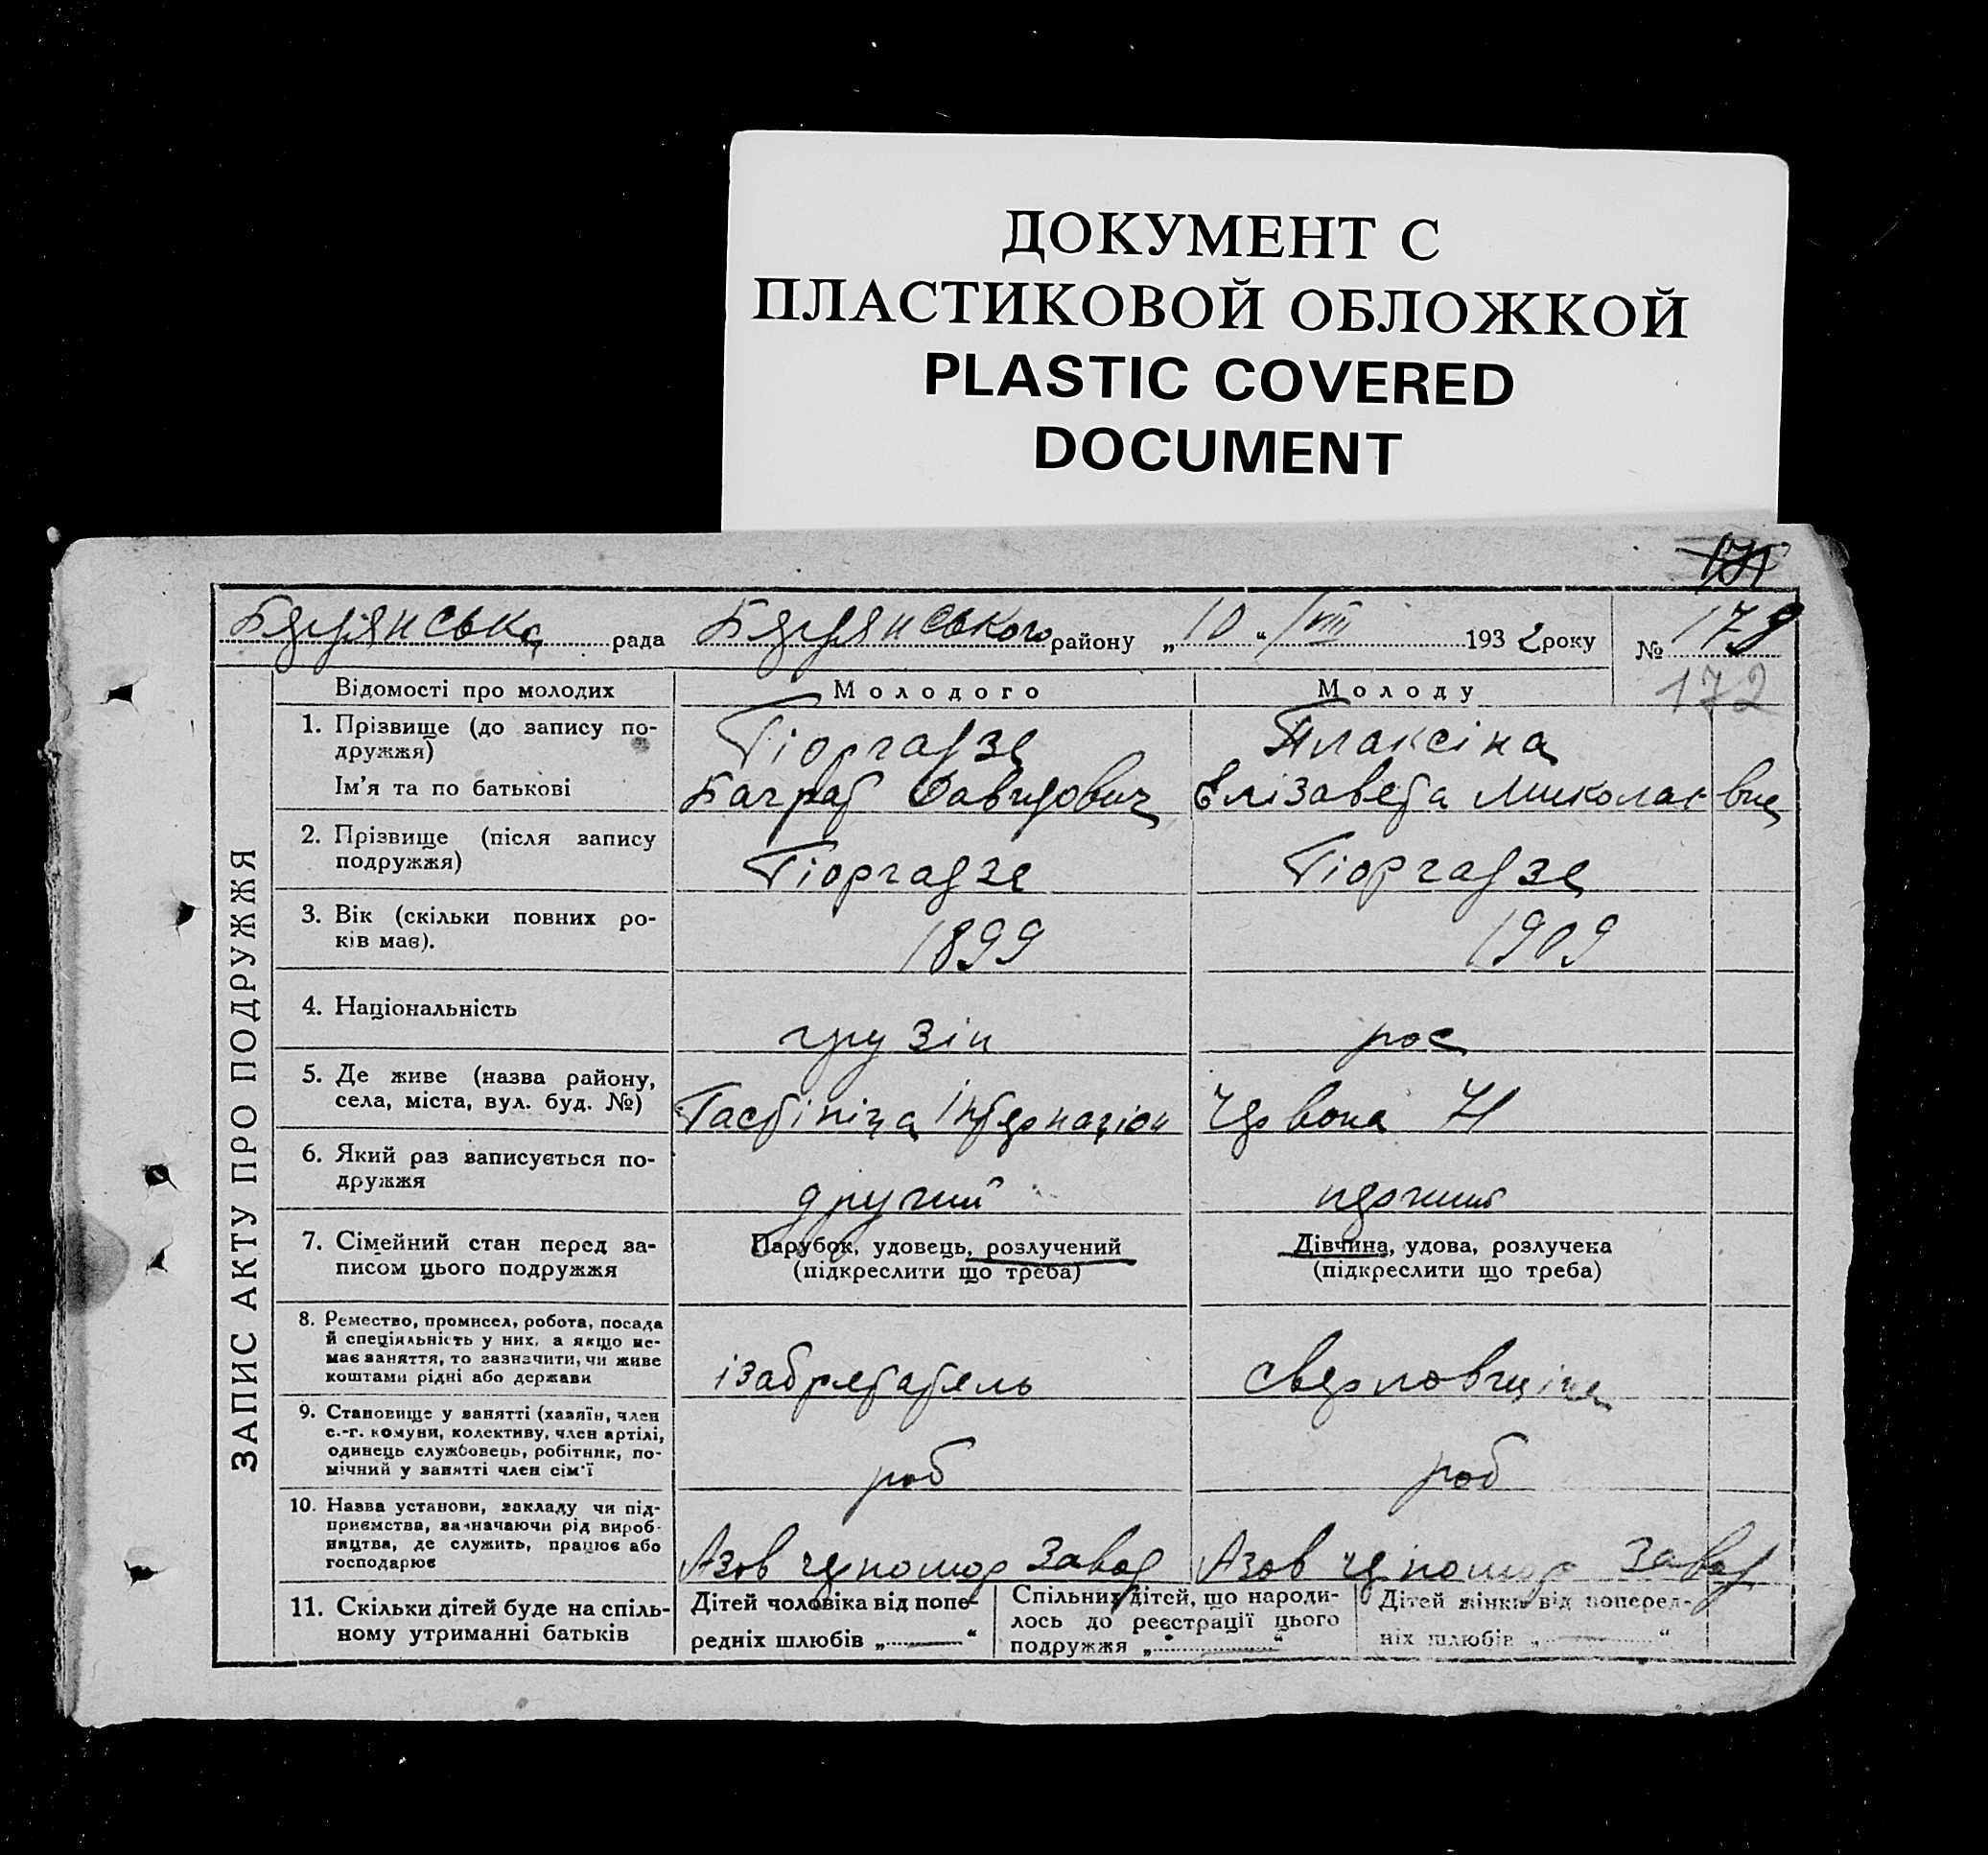 ДОКУМЕНТ С
ПЛАСТИКОВОЙ ОБЛОЖКОЙ
PLASTIC COVERED
DOCUMENT
Бердянська рада Бердянського району „10“ VIII 1932 року № 178
172
ЗАПИС АКТУ ПРО ПОДРУЖЖЯ
Відомості про молодих Молодого Молоду
1. Прізвище (до запису по-
дружжя) Гіоргадзе Плаксіна
Ім'я та по батькові Баграт Давидович Єлізавета Миколаєвна
2. Прізвище (після запису
подружжя) Гіоргадзе Гіоргадзе
3. Вік (скільки повних ро-
ків має). 1899 1909
4. Національність грузін рос
5. Де живе (назва району,
села, міста, вул. буд. №) Гастініца Інтернаціон Червона 71
6. Який раз записується по-
дружжя другий перший
7. Сімейний стан перед за-
писом цього подружжя
Парубок, удовець, розлучений
(підкреслити що треба)
Дівчина, удова, розлучена
(підкреслити що треба)
8. Ремество, промисел, робота, посада
й спеціяльність у них, а якщо не-
має заняття, то зазначити, чи живе
коштами рідні або держави
ізабретатель сверловщіца
9. Становище у занятті (хазяїн, член
с.-г. комуни, колективу, член артілі,
одинець службовець, робітник, по-
мічний у занятті член сім'ї
роб роб
10. Назва установи, закладу чи під-
приємства, зазначаючи рід вироб-
ництва, де служить, працює або
господарює
Азов черномор завод Азов черномор завод
11. Скільки дітей буде на спіль-
ному утриманні батьків
Дітей чоловіка від попе-
редніх шлюбів „—“
Спільних дітей, що народи-
лось до реєстрації цього
подружжя „ “
Дітей жінки від поперед-
ніх шлюбів „—“